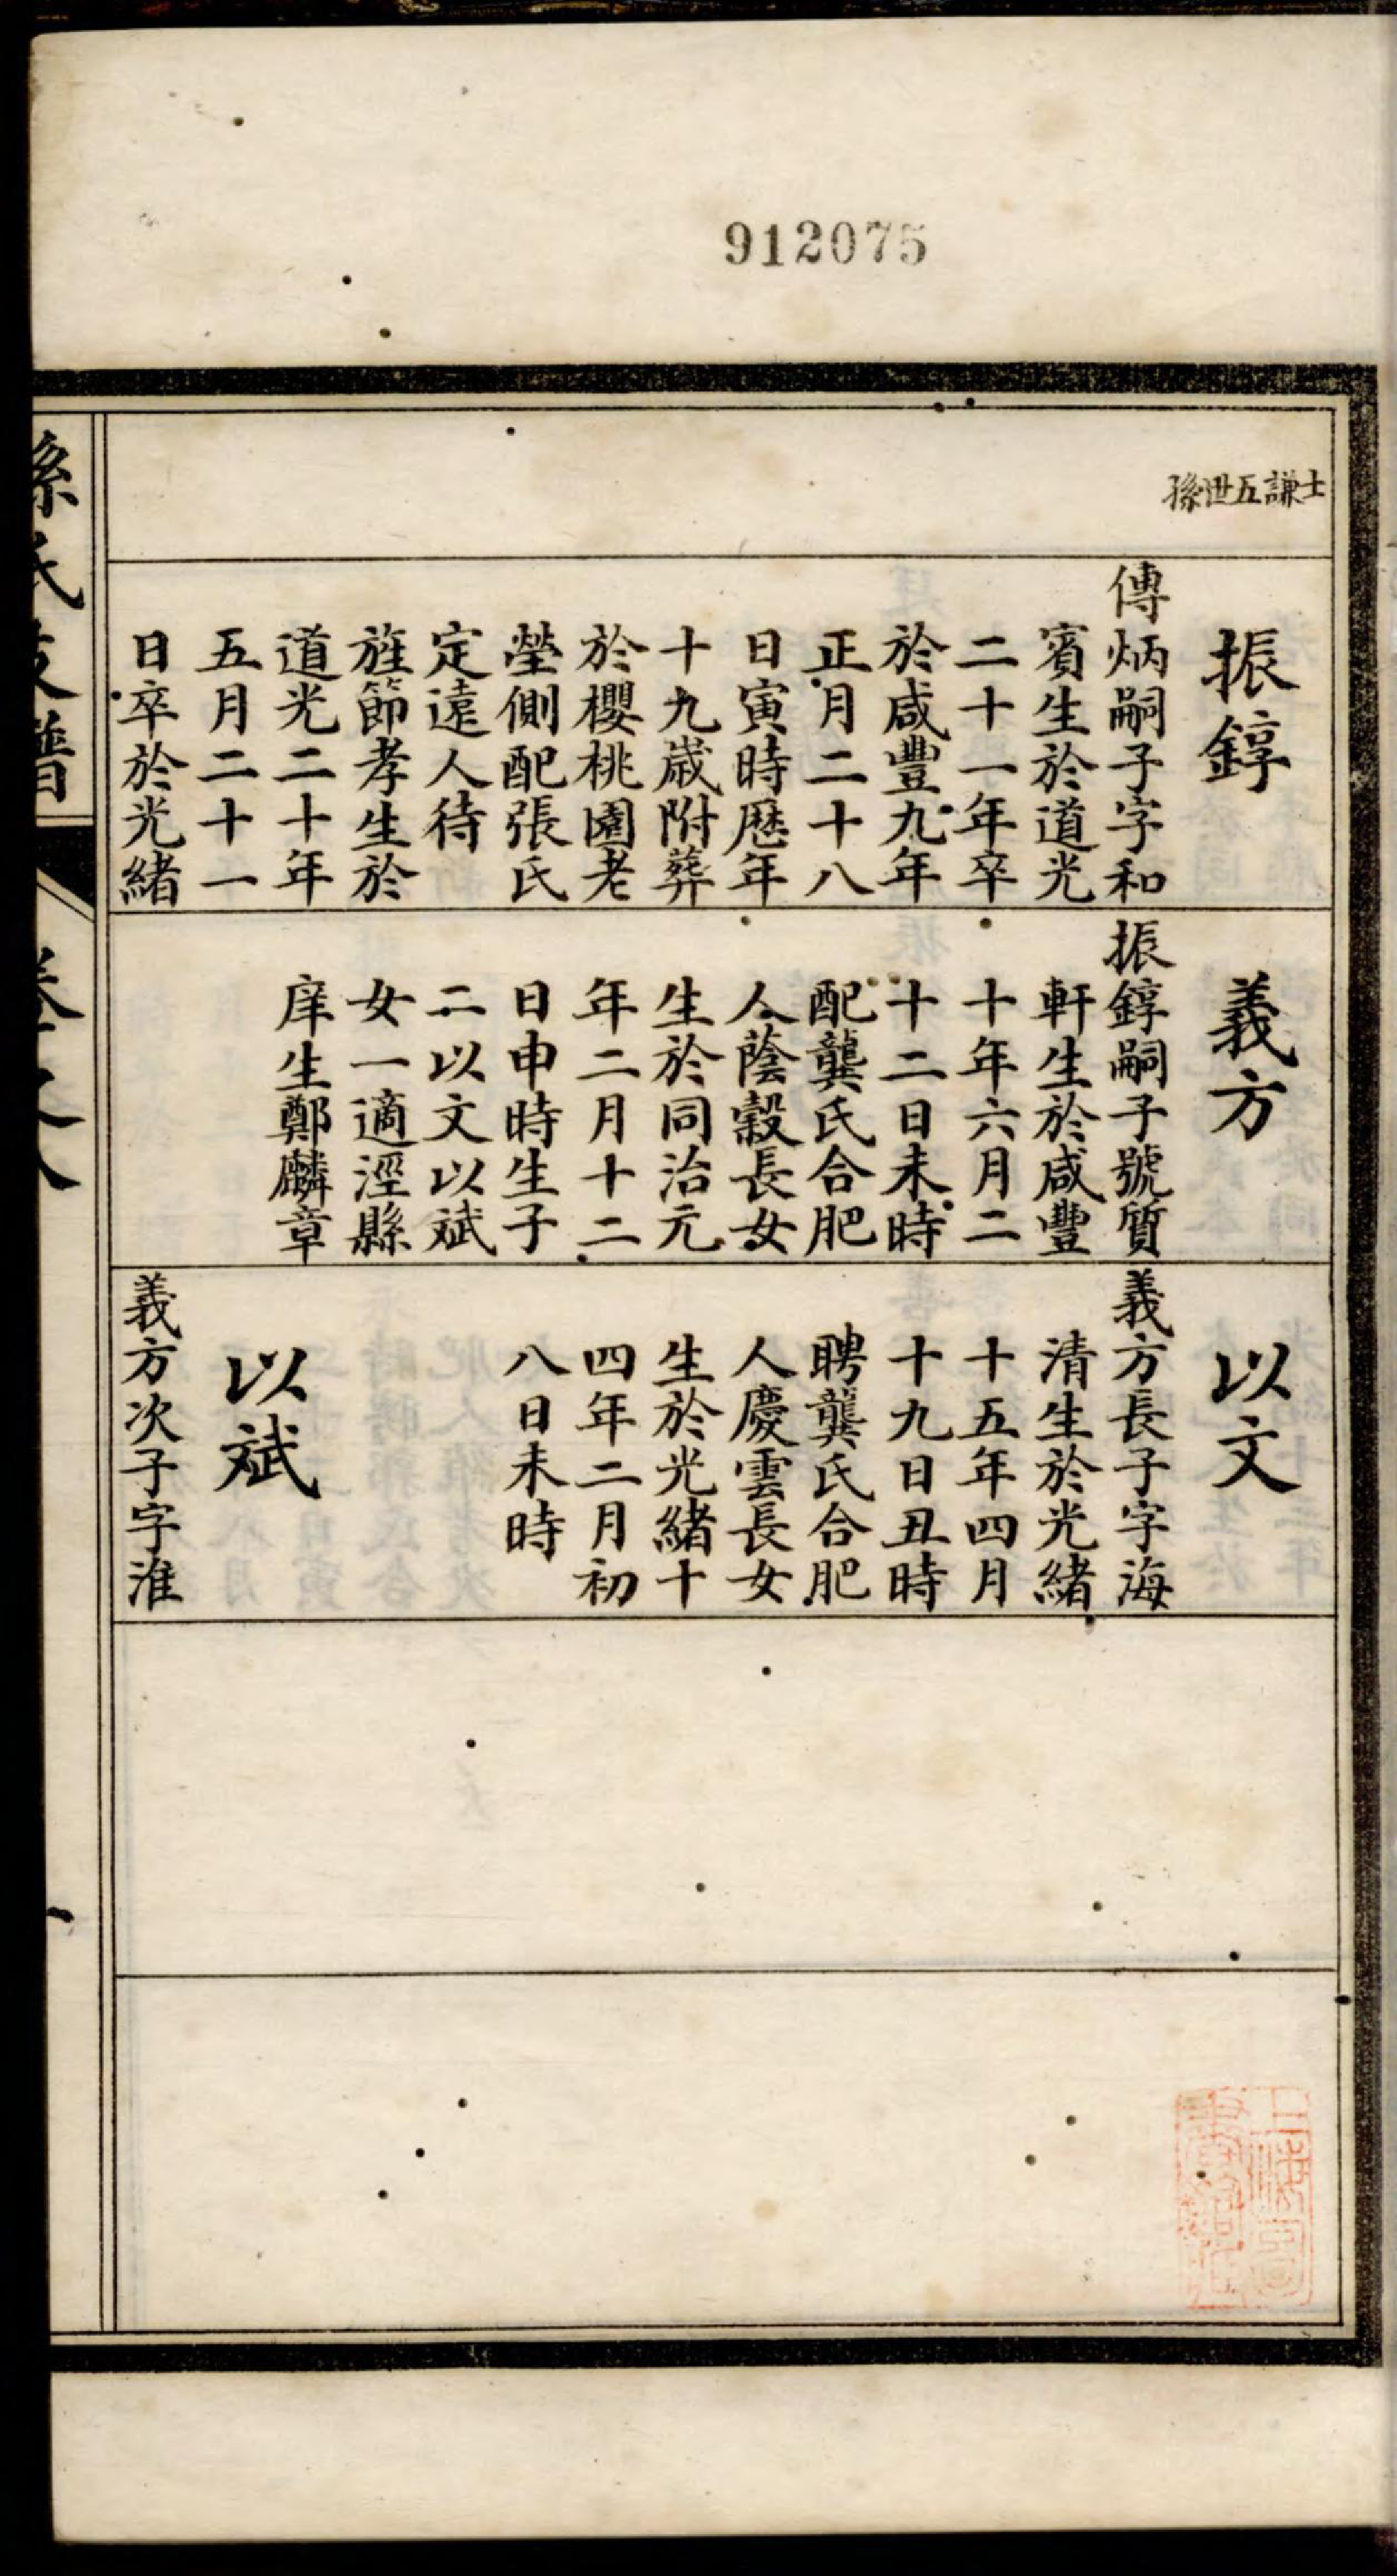 912075
士謙五世孫
振錞
傳炳嗣子字和
賓生於道光
二十一年卒
於咸豐九年
正月二十八
日寅時歷年
十九歲附葬
於櫻桃園老
塋側配張氏
定遠人待
旌節孝生於
道光二十年
五月二十一
日卒於光緒
義方
振錞嗣子號質
軒生於咸豐
十年六月二
十二日未時
配龔氏合肥
人蔭穀長女
生於同治元
年二月十二
日申時生子
二以文以斌
女一適涇縣
庠生鄭麟章
以文
義方長子字海
清生於光緒
十五年四月
十九日丑時
聘龔氏合肥
人慶雲長女
生於光緒十
四年二月初
八日未時
以斌
義方次子字淮
孫氏支譜